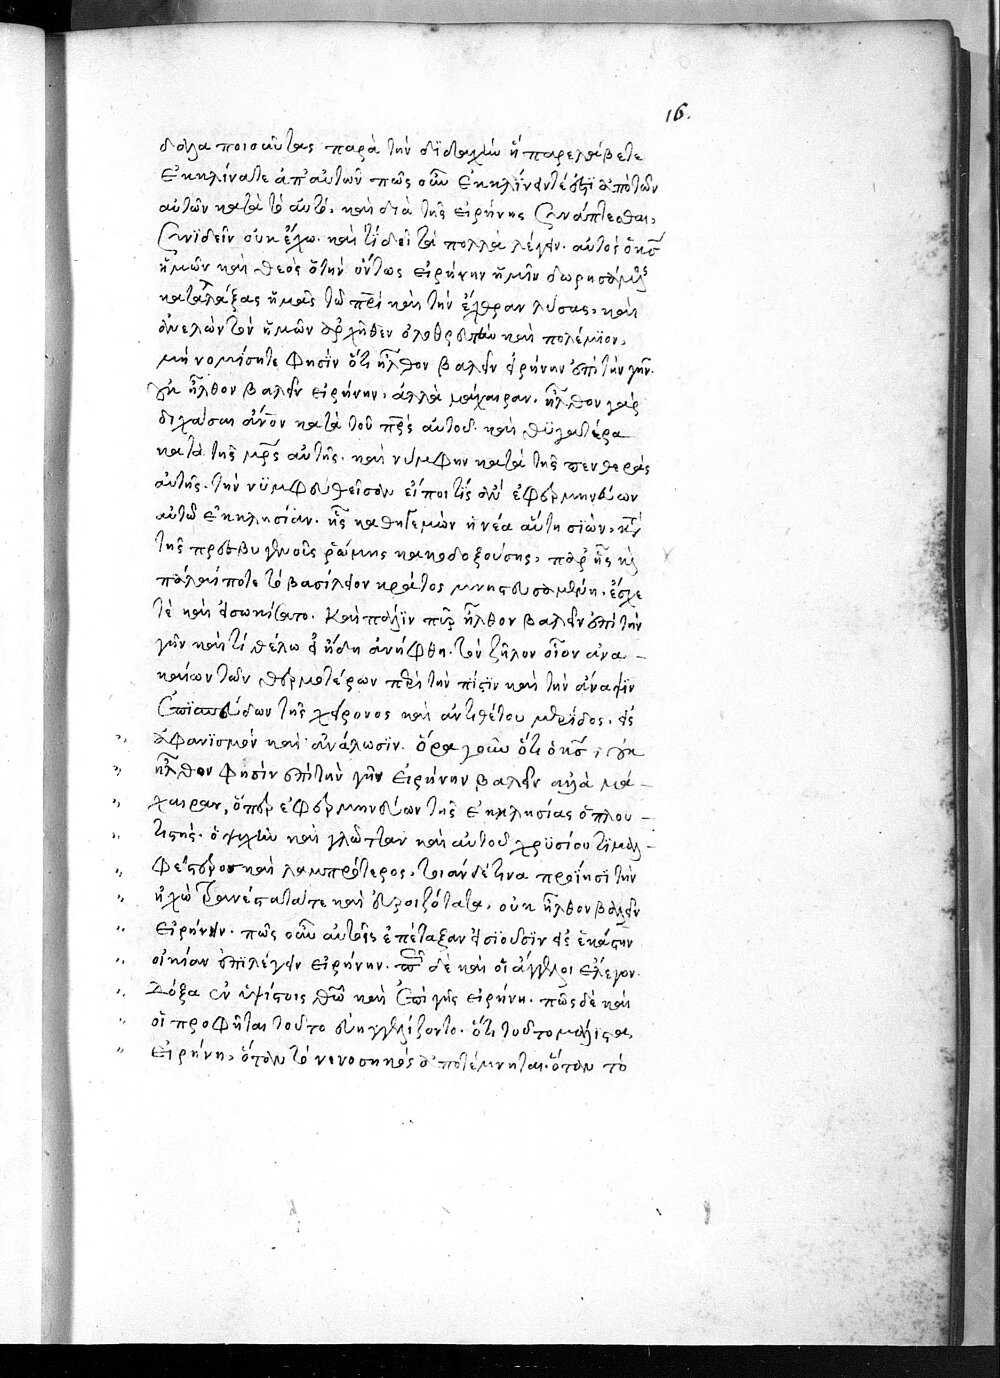 16.
δαλα ποιοῦντας παρὰ τὴν διδαχὴν ἣ παρελάβετε
ἐκκλίνατε ἀπ' αὐτῶν πῶς οὖν ἐκκλίνειν τὲ ἀπὸ τῶν
αὐτῶν κατὰ τὸ αὐτό, καὶ διὰ τῆς εἰρήνης συνάπτεσθαι,
συνϊδεῖν οὐκ ἔχω. καὶ τί δεῖ τὰ πολλὰ λέγειν. αὐτὸς ὁ κς
ἡμῶν καὶ θεὸς ὁ τὴν ὄντως εἰρήνην ἡμῖν δωρησάμενος
καταλλάξας ἡμᾶς τῶ πρὶ καὶ τὴν ἔχθραν λύσας, καὶ
ἀνελὼν τὸν ἡμῶν ἀρχῆθεν ὀλοθρευτὴν καὶ πολέμιον,
μὴ νομίσητε φησὶν ὅτι ἦλθον βαλεῖν εἰρήνην ἐπὶ τὴν γῆν.
οὐκ ἦλθον βαλεῖν εἰρήνην, ἀλλὰ μάχαιραν. ἦλθον γὰρ
διχάσαι ἄνον κατὰ τοῦ πρς αὐτοῦ. καὶ θυγατέρα
κατὰ τῆς μρς αὐτῆς. καὶ νύμφην κατὰ τῆς πενθερᾶς
αὐτῆς. τὴν νυμφευθεῖσαν εἴποι τις ἂν ἐφερμηνεύων
αὐτῶ ἐκκλησίαν. ἧς καθηγεμὼν ἡ νέα αὕτη σιὼν, κατὰ
τῆς πρεσβυγενοῦς ῥώμης κακοδοξούσης, παρ' ἧς καὶ
πάλαι ποτε τὸ βασίλειον κράτος μνηστευσαμένη, ἔσχε
τὲ καὶ εἰσωκίσατο. καὶ πάλιν πῦρ ἦλθον βαλεῖν ἐπὶ τὴν
γῆν καὶ τί θέλω εἰ ἤδη ἀνήφθη. τὸν ζῆλον οἷον ἀνα-
καίων τῶν θερμοτέρων περὶ τὴν πίστιν καὶ τὴν ἄναψιν
ἐπισπεύδων τῆς χείρονος καὶ ἀντιθέτου μερίδος, εἰς
ἀφανισμὸν καὶ ἀνάλωσιν. ὅρα γοῦν ὅτι ὁ κς, οὐκ
ἦλθον φησὶν ἐπὶ τὴν γῆν εἰρήνην βαλεῖν ἀλλὰ μά-
χαιραν, ὅπερ ἐφερμηνεύων τῆς ἐκκλησίας ὁ πλου-
τιστὴς. ὁ ψυχὴν καὶ γλῶτταν καὶ αὐτοῦ χρυσίου τιμαλ-
φέστερος καὶ λαμπρότερος, τοιάνδέ τινα προΐησι τὴν
ἠχὼ συνέστατα τε καὶ εὐχοιζότατα, οὐκ ἦλθον βαλεῖν
εἰρήνην. πῶς οὖν αὐτοῖς ἐπέταξαν εἰσϊοῦσιν εἰς ἑκάστην
οἰκίαν ἐπιλέγειν εἰρήνην. πῶς δὲ καὶ οἱ ἄγγελοι ἔλεγον.
Δόξα ἐν ὑψίστοις θῶ καὶ ἐπὶ γῆς εἰρήνη. πῶς δὲ καὶ
οἱ προφῆται τοῦτο εὐηγγελίζοντο. ὅτι τοῦτο μάλιστα
εἰρήνη, ὅταν τὸ νενοσηκὸς ἀποτέμνηται. ὅταν τὸ